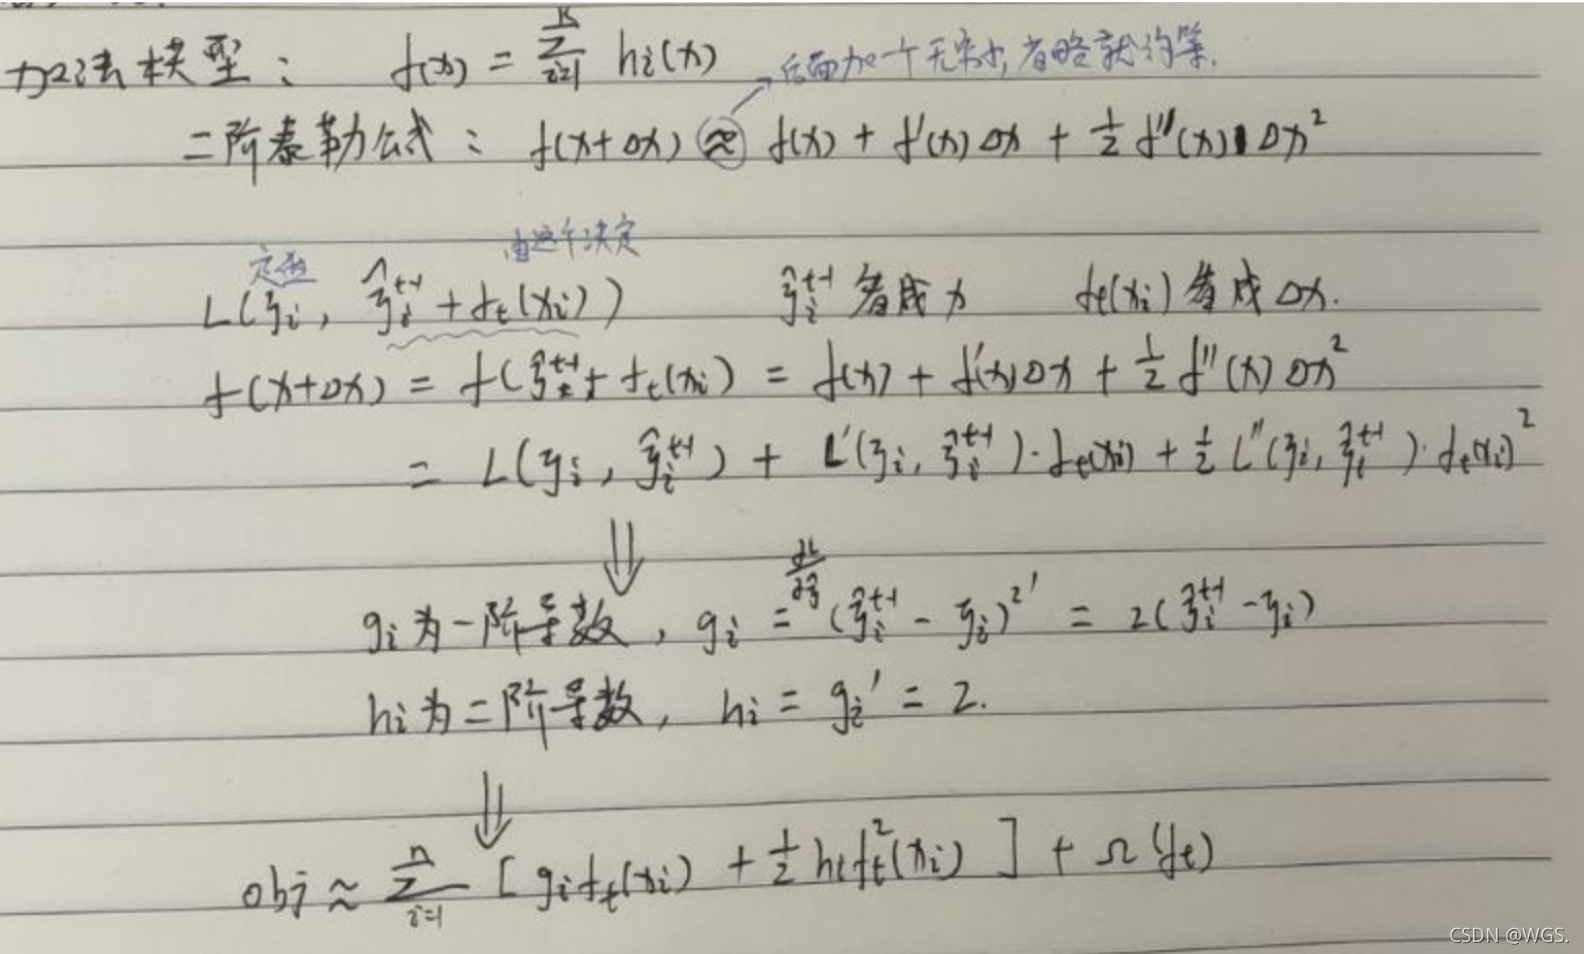 加法模型： f(x) = Σ_{i=1}^{K} h_i(x)
后面加一个无穷小，省略就约等.
二阶泰勒公式： f(x+Δx) ≈ f(x) + f'(x)Δx + ½ f''(x) Δx²
定西 由这个决定
L(y_i, ŷ_i^{t-1} + f_t(x_i)) ŷ_i^{t-1} 看成 x f_t(x_i) 看成 Δx.
f(x+Δx) = f(ŷ_i^{t-1} + f_t(x_i)) = f(x) + f'(x)Δx + ½ f''(x) Δx²
= L(y_i, ŷ_i^{t-1}) + L'(y_i, ŷ_i^{t-1})·f_t(x_i) + ½ L''(y_i, ŷ_i^{t-1})·f_t(x_i)²
⇓
∂L/∂ŷ
g_i为一阶导数, g_i = (ŷ_i^{t-1} - y_i)²' = 2(ŷ_i^{t-1} - y_i)
h_i为二阶导数, h_i = g_i' = 2.
⇓
obj ≈ Σ_{i=1}^{n} [g_i f_t(x_i) + ½ h_i f_t²(x_i)] + Ω(f_t)
CSDN @WGS.